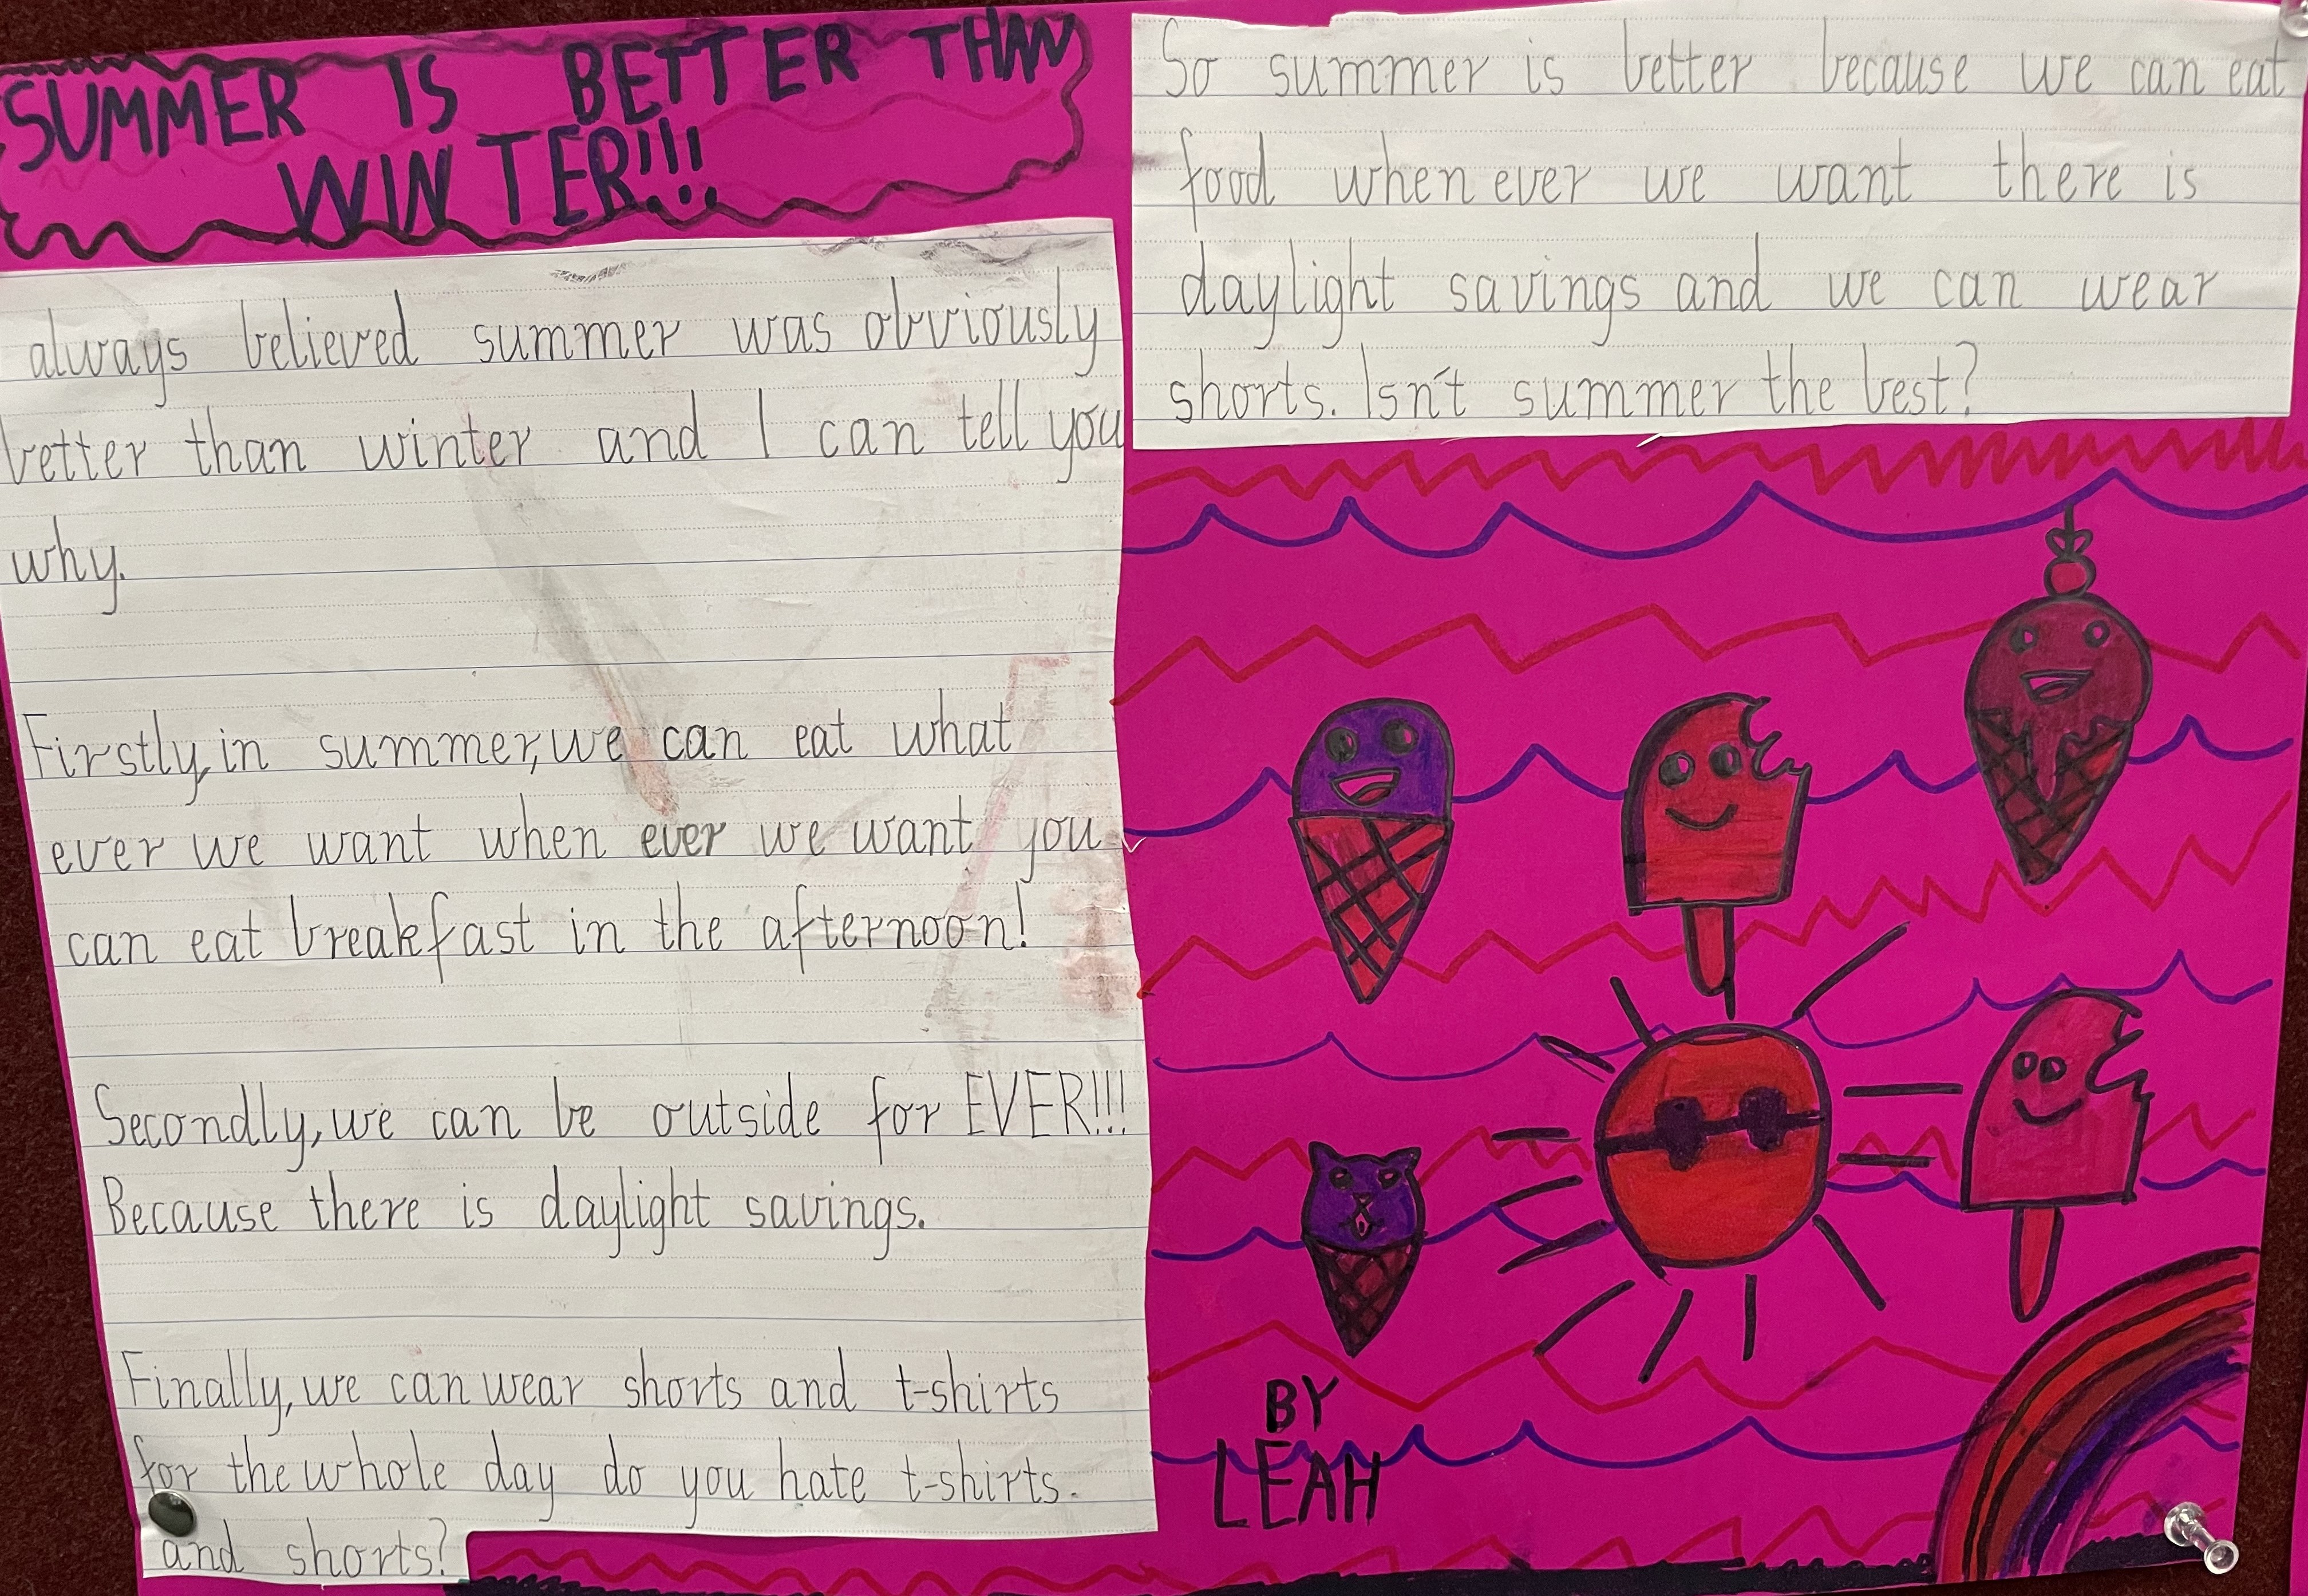 SUMMER IS BETTER THAN
WINTER!!!
always believed summer was obviously
better than winter and I can tell you
why.
Firstly, in summer, we can eat what
ever we want when ever we want you
can eat breakfast in the afternoon!
Secondly, we can be outside for EVER!!!
Because there is daylight savings.
Finally, we can wear shorts and t-shirts
for the whole day do you hate t-shirts.
and shorts?
So summer is better because we can eat
food when ever we want there is
daylight savings and we can wear
shorts. Isn't summer the best?
BY
LEAH